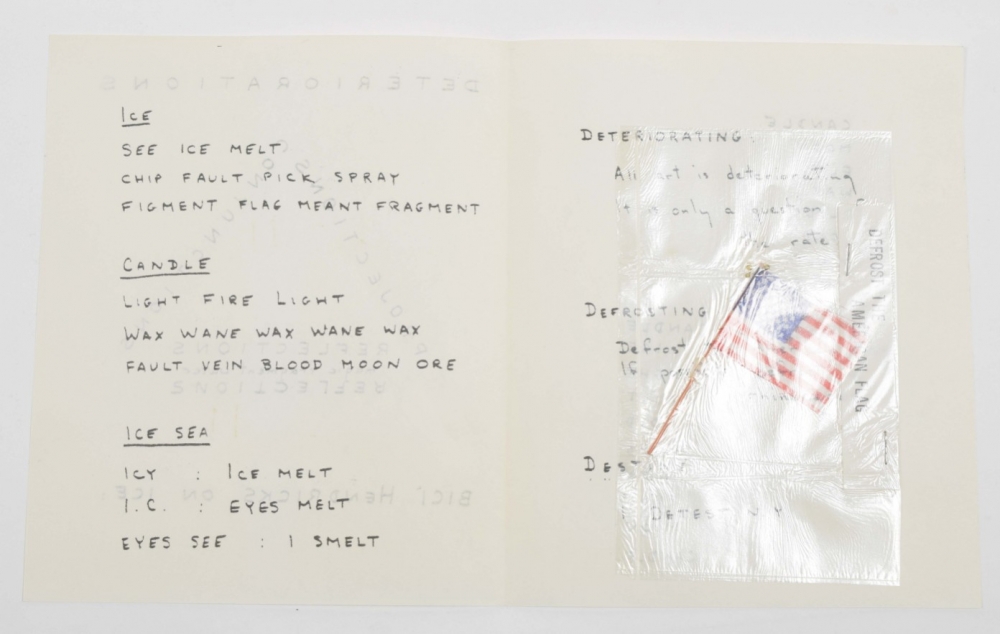 ICE
SEE ICE MELT
CHIP FAULT PICK SPRAY
FIGMENT FLAG MEANT FRAGMENT
CANDLE
LIGHT FIRE LIGHT
WAX WANE WAX WANE WAX
FAULT VEIN BLOOD MOON ORE
ICE SEA
ICY : ICE MELT
I.C. : EYES MELT
EYES SEE : I SMELT
DETERIORATING:
All art is deteriorating
It is only a question of
the rate
DEFROSTING
Defrost
16
DESTINY
: DETESTINY
DEFROST THE AMERICAN FLAG
DETERIORATIONS
CONJUNCTIONS
& REFLECTIONS
BICI HENDRICKS ON ICE:
CANDLE